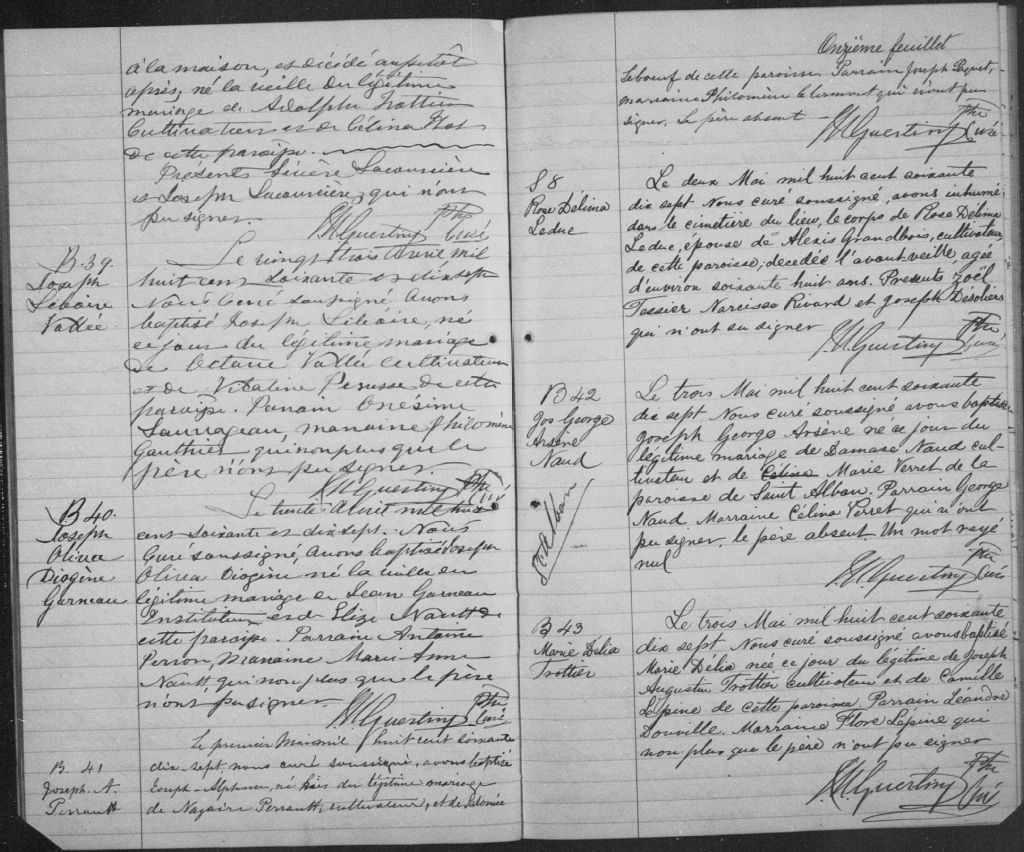 à la maison, et décédé aussitôt
après, né la veille du légitime
mariage de Adolphe Trottier
Cultivateur et de Célina
de cette paroisse.
Présents Sévère Lacoursière
et Joseph Lacoursière, qui n'ont
pu signer.
Ptre
Curé
B. 39.
Joseph
Liboire
Vallée
Le vingt trois Avril mil
huit cent soixante et dix sept
Nous Curé soussigné Avons
baptisé Joseph, Liboire, né
ce jour du légitime mariage
de Octave Vallée Cultivateur
et de Vitaline Perusse de cette
paroisse. Parrain Onésime
Sauvageau, marraine Philomène
Gauthier qui non plus que le
père n'ont pu signer.
Ptre
Curé
B 40.
Joseph
Olivia
Diogène
Garneau
Le trente Avril mil huit
cent soixante et dix sept. Nous
Curé soussigné, Avons baptisé Joseph
Olivia Diogène, né la veille du
légitime mariage de Jean Garneau
Instituteur et de Elize Naud de
cette paroisse. Parrain Antoine
Perron, Marraine Marie Anne
Naud, qui non plus que le père
n'ont pu signer.
Ptre
Curé
B. 41
Joseph. A.
Perrault
Le premier Mai mil huit cent soixante
dix sept, nous curé soussigné, avons baptisé
Joseph-Alphonse, né hier du légitime mariage
de Nazaire Perrault, cultivateur, et de Salomée
Onzième feuillet
Leboeuf de cette paroisse. Parrain Joseph Paquet,
marraine Philomène Clermont qui n'ont pu
signer. Le père absent
Ptre
Curé
S 8
Rose Délima
Leduc
Le deux Mai mil huit cent soixante
dix sept Nous curé soussigné, avons inhumé
dans le cimetière du lieu, le corps de Rose Délima
Leduc, épouse de Alexis Grandbois, cultivateur,
de cette paroisse; décédée l'avant veille, agée
d'environ soixante huit ans. Présents Zoël
Tessier Narcisse Rivard et Joseph Désoliers
qui n'ont su signer
Ptre
Curé
B 42
Jos George
Arsène
Naud
St Alban
Le trois Mai mil huit cent soixante
dix sept Nous curé soussigné avons baptisé
Joseph George Arsène né ce jour du
légitime mariage de Damase Naud cul-
tivateur et de Célina Marie Verret de la
paroisse de Saint Alban. Parrain George
Naud Marraine Célina Verret qui n'ont
pu signer, le père absent Un mot rayé
nul
Ptre
Curé
B 43
Marie Délia
Trottier
Le trois Mai mil huit cent soixante
dix sept Nous curé soussigné avons baptisé
Marie Délia née ce jour du légitime de Joseph
Augustin Trottier cultivateur et de Camille
Lépine de cette paroisse. Parrain Léandre
Douville. Marraine Flore Lépine qui
non plus que le père n'ont pu signer
Ptre
Curé